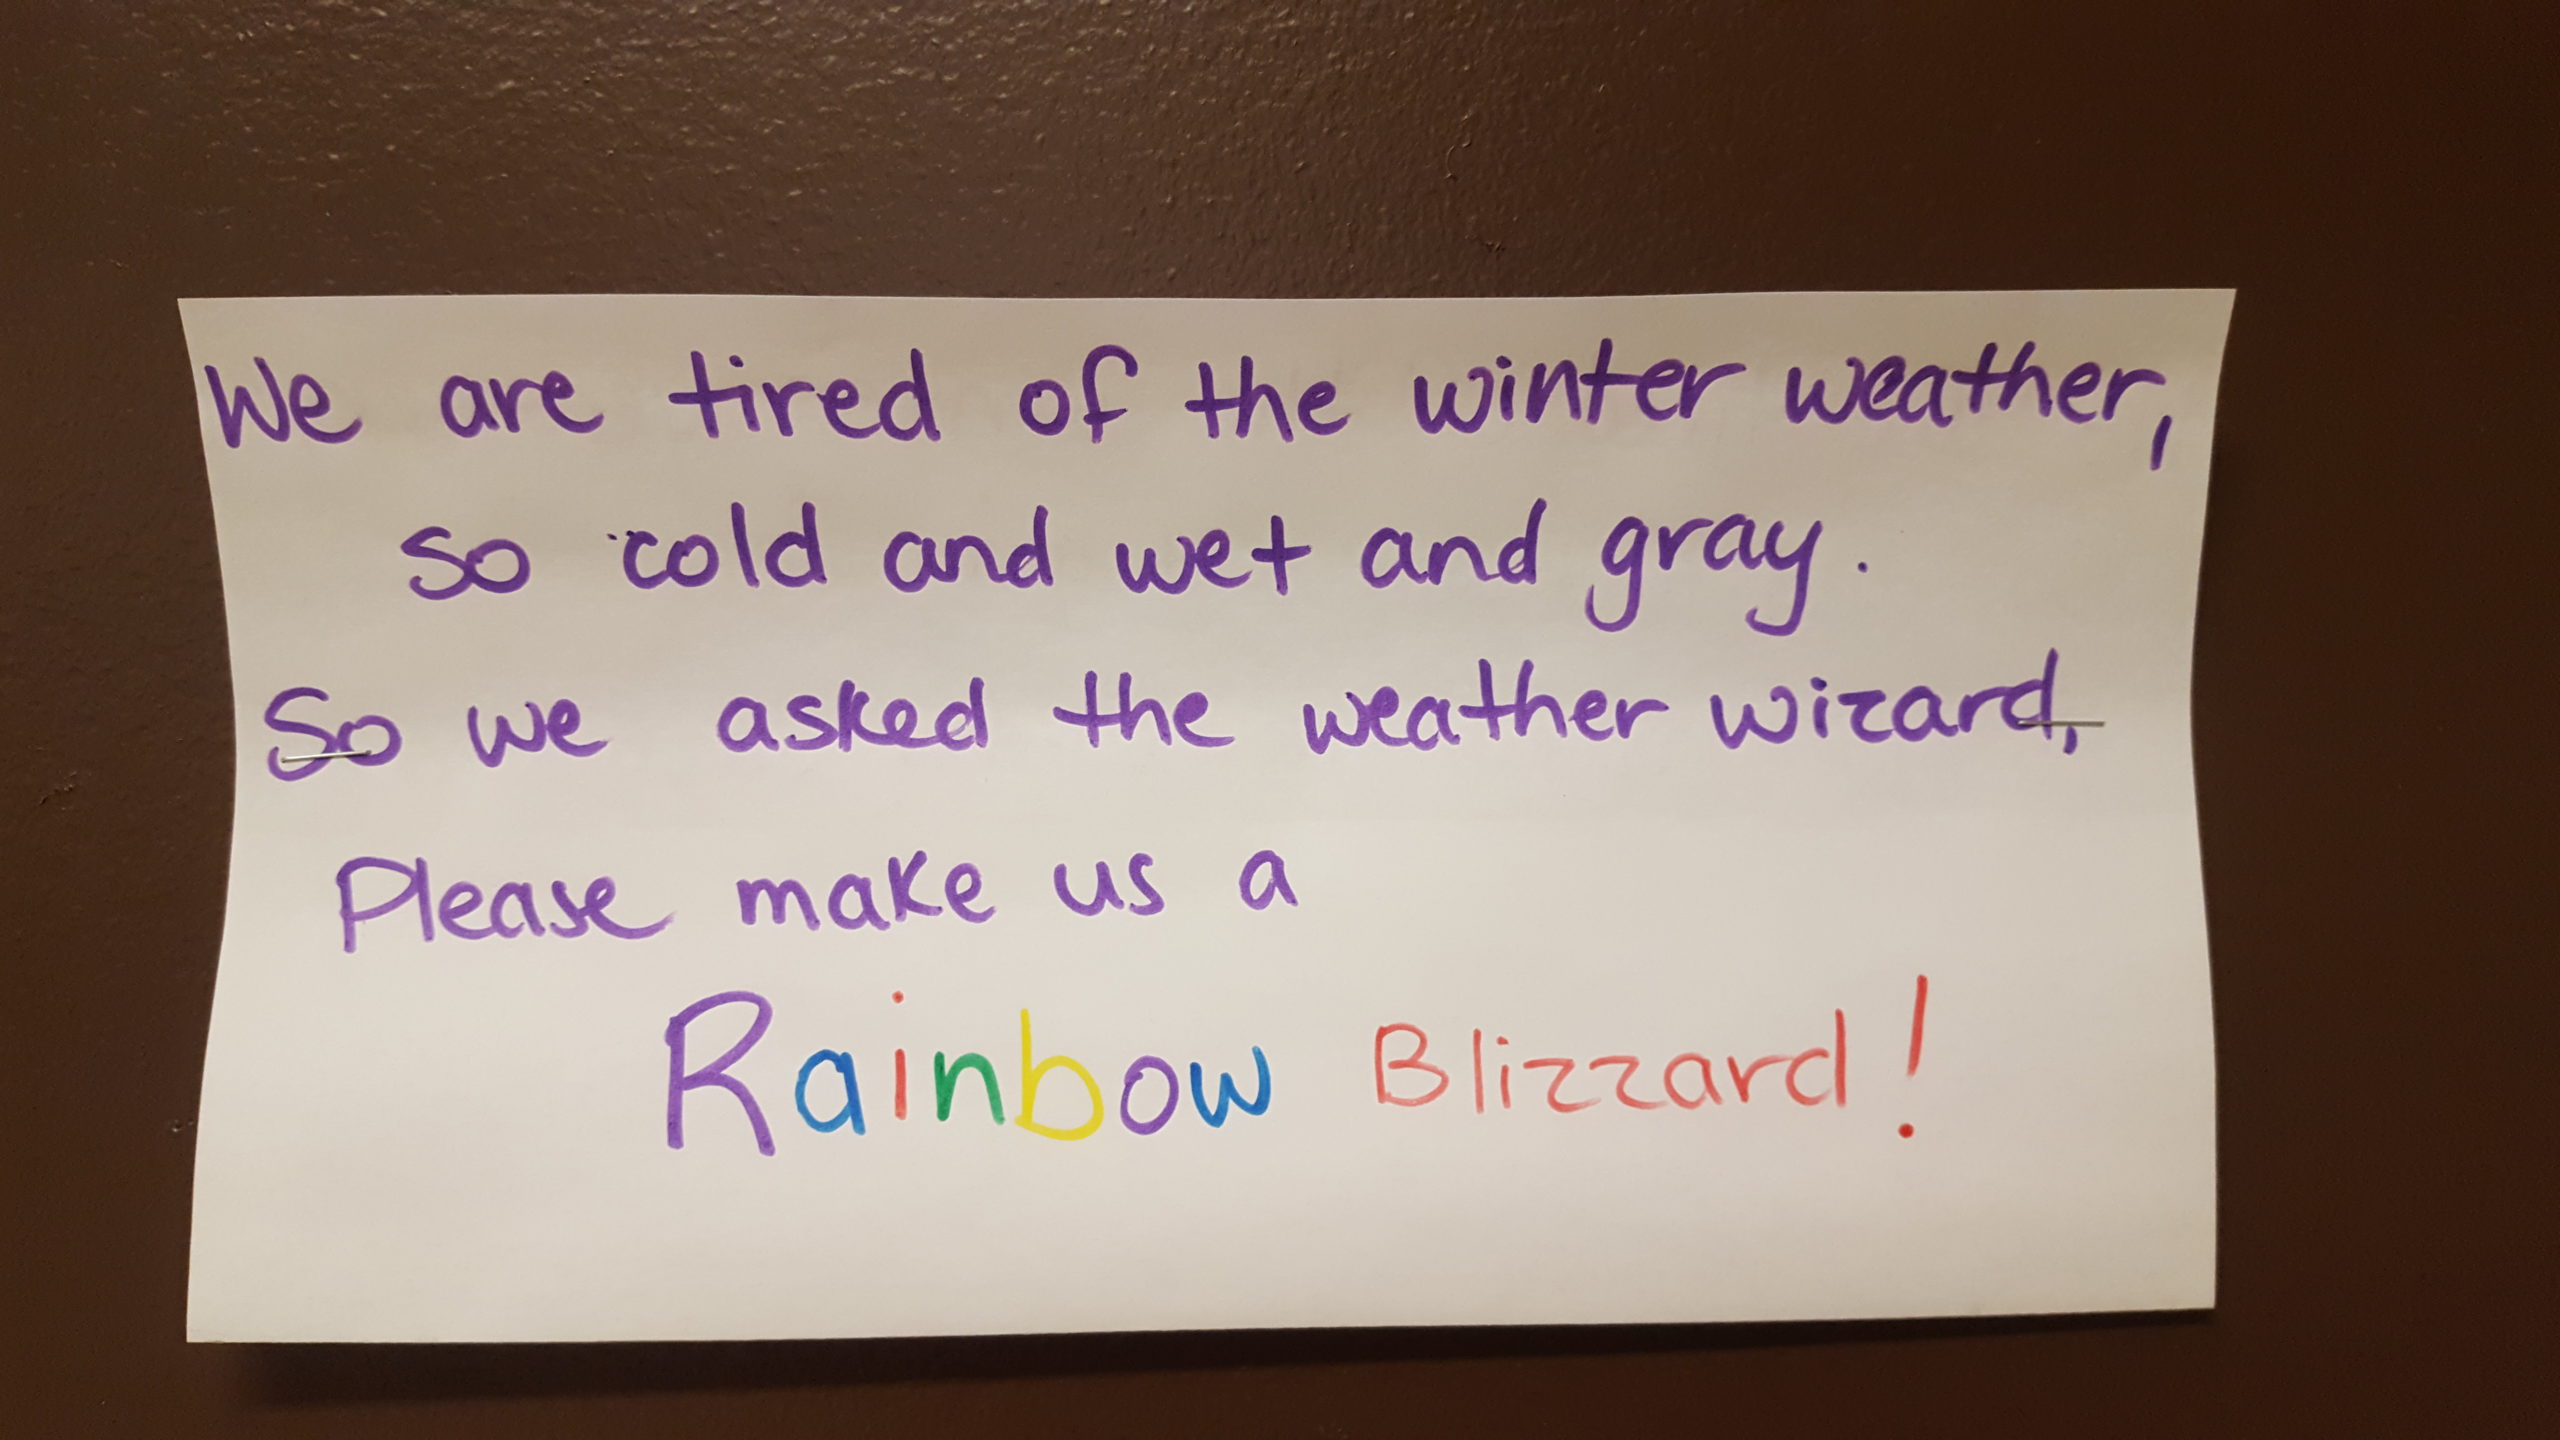 We are tired of the winter weather,
so cold and wet and gray.
So we asked the weather wizard,
Please make us a
Rainbow Blizzard!